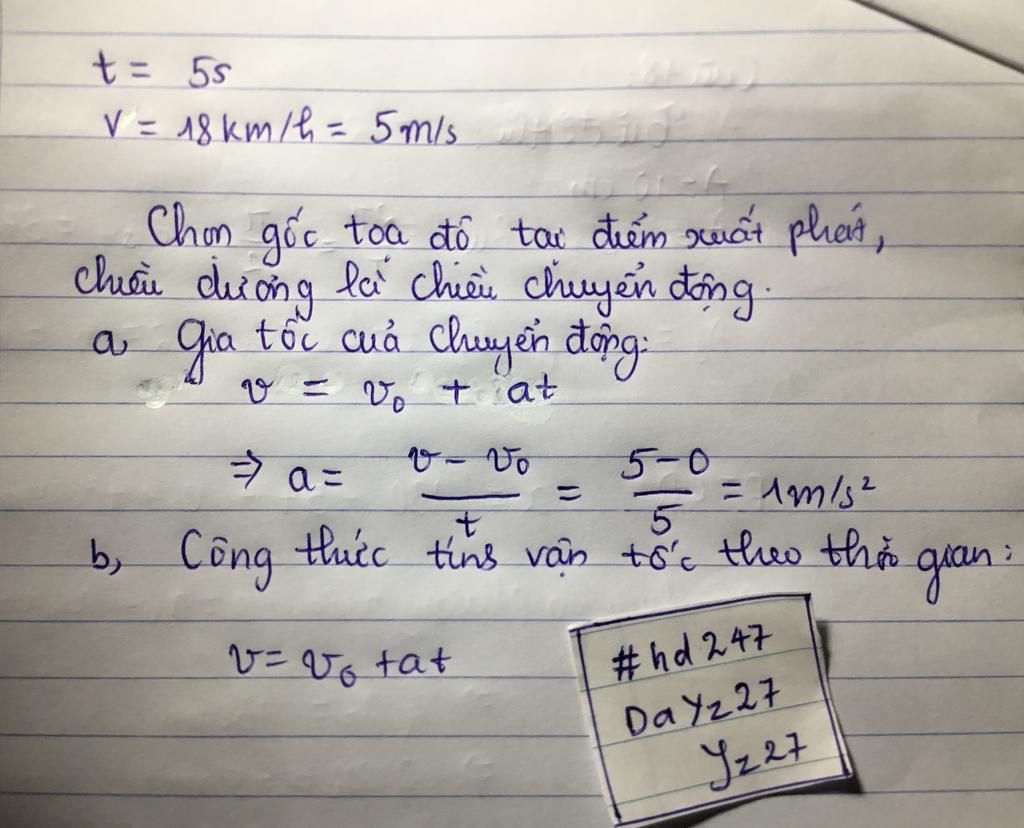 t = 5s
v = 18 km/h = 5 m/s
Chọn gốc toạ độ tại điểm xuất phát,
chiều dương là chiều chuyển động.
a, Gia tốc của chuyển động:
v = v₀ + at
⇒ a = (v - v₀)/t = (5-0)/5 = 1m/s²
b, Công thức tíns vận tốc theo thời gian:
v = v₀ + at
#hd247
DaYz27
Yz27